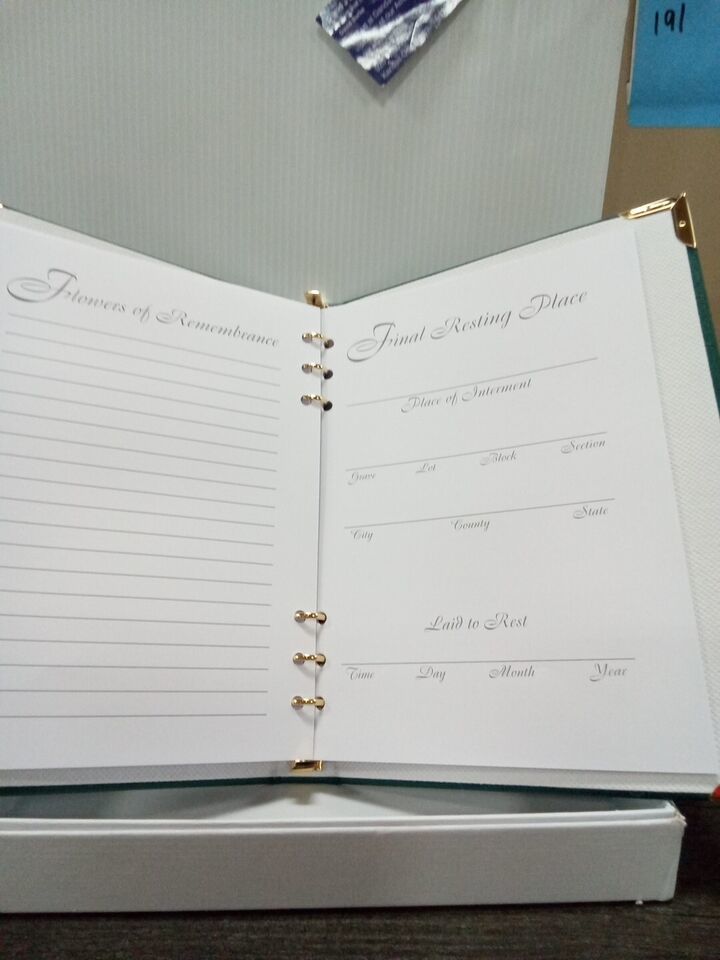 191
Flowers of Remembrance
Final Resting Place
Place of Interment
Grave Lot Block Section
City County State
Laid to Rest
Time Day Month Year